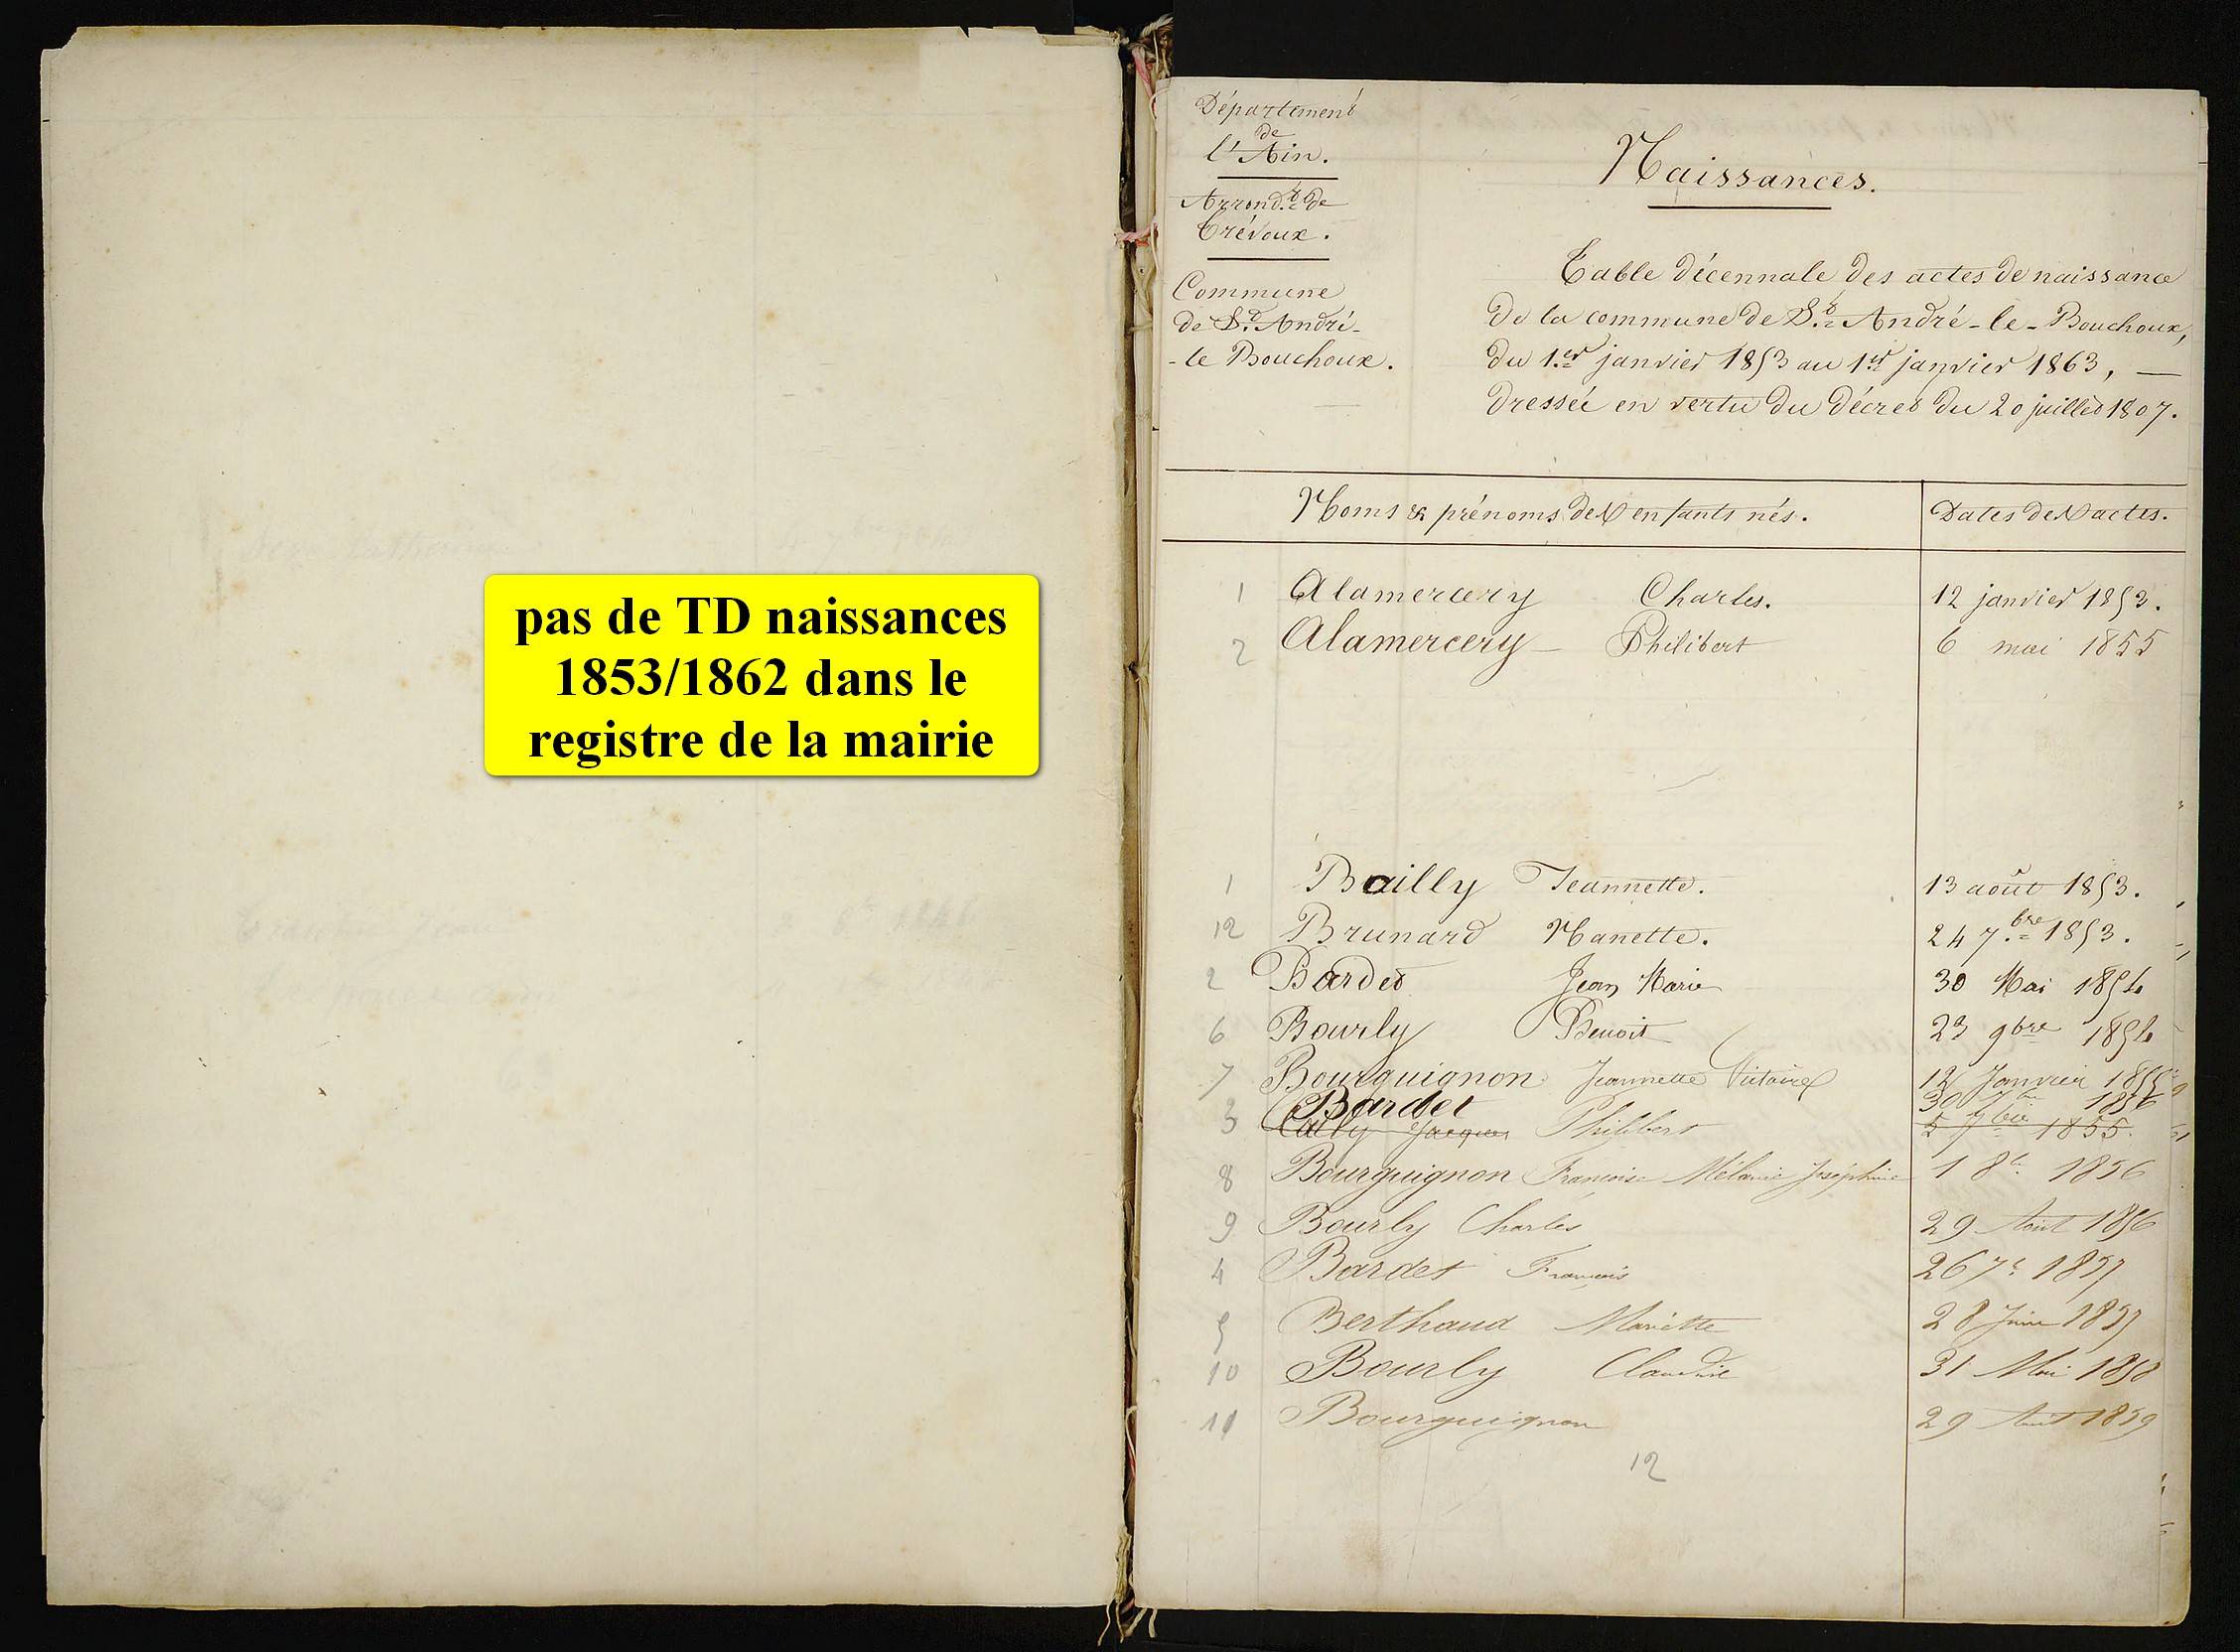 pas de TD naissances
1853/1862 dans le
registre de la mairie
Département
de
l'Ain.
Arrond.t de
Trévoux.
Commune
de S.t André-
-le Bouchoux.
Naissances.
Table décennale des actes de naissance
de la commune de S.t André-le-Bouchoux,
du 1.er janvier 1853 au 1.er janvier 1863, —
dressée en vertu du décret du 20 juillet 1807.
Noms & prénoms des enfants nés. Dates des actes.
1 Alamercery Charles. 12 janvier 1853.
2 Alamercery Philibert 6 mai 1855
1 Bailly Jeannette. 13 août 1853.
12 Brunard Nanette. 24 7.bre 1853.
2 Bardet Jean Marie 30 Mai 1854
6 Bourly Benoit 23 9bre 1854
7 Bourguignon Jeannette Victoire 12 Janvier 1855
Bardet 30 1856
3 Cailly Jacques Philibert 5 7bre 1855.
8 Bourguignon Francoise Mélanie Joséphine 1 8b. 1856
9 Bourly Charles 29 Aout 1856
4 Bardet Francois 26 7e 1857
5 Berthaud Mariette 28 Juin 1857
10 Bourly Claudine 31 Mai 1858
11 Bourguignon 29 Aout 1859
12